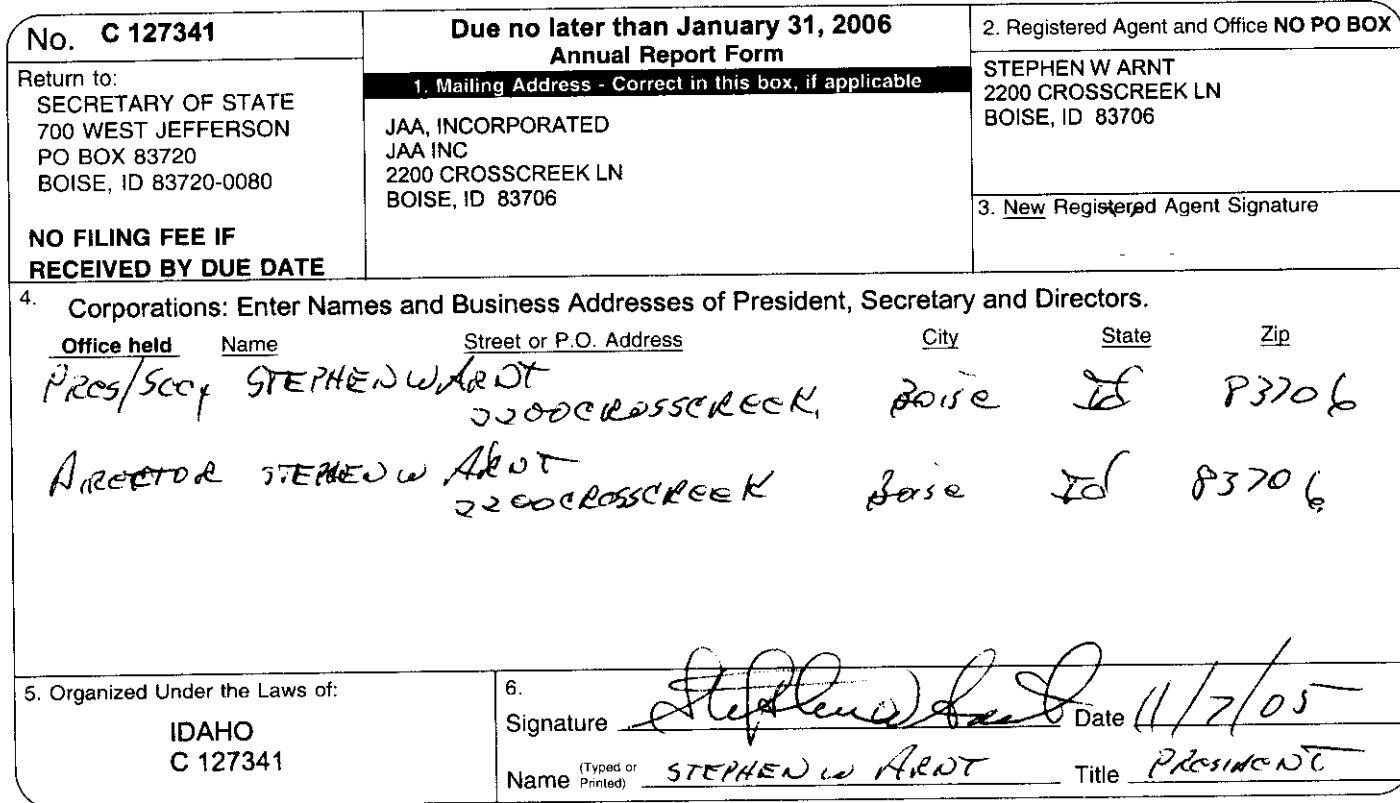 No. C 127341
Return to:
SECRETARY OF STATE
700 WEST JEFFERSON
PO BOX 83720
BOISE, ID 83720-0080
NO FILING FEE IF
RECEIVED BY DUE DATE
Due no later than January 31, 2006
Annual Report Form
1. Mailing Address - Correct in this box, if applicable
JAA, INCORPORATED
JAA INC
2200 CROSSCREEK LN
BOISE, ID 83706
2. Registered Agent and Office NO PO BOX
STEPHEN W ARNT
2200 CROSSCREEK LN
BOISE, ID 83706
3. New Registered Agent Signature
4. Corporations: Enter Names and Business Addresses of President, Secretary and Directors.
Office held Name Street or P.O. Address City State Zip
Pres/Secy STEPHEN W ARNT
2200 CROSSCREEK, Boise Id 83706
DIRECTOR STEPHEN W ARNT
2200 CROSSCREEK Boise Id 83706
5. Organized Under the Laws of:
IDAHO
C 127341
6.
Signature Stephen W Arnt Date 11/7/05
Name (Typed or Printed) STEPHEN W ARNT Title PRESIDENT